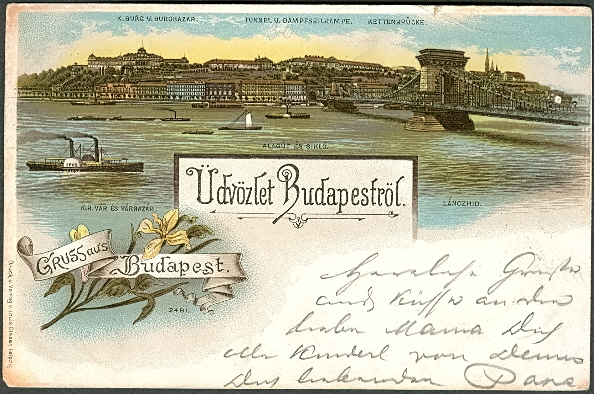 K. BURG U. BURGBAZAR.
TUNNEL U. DAMPFSEILRAMPE.
KETTENBRÜCKE.
ALAGÚT ÉS SIKLÓ.
Üdvözlet Budapestről.
KIR. VÁR ÉS VÁRBAZÁR.
LÁNCZHID.
GRUSS aus
Budapest.
2481.
Herzliche Grüsse
und Küsse an die
liebe Mama Dich
alle Kinderl von Deinem
Dich liebenden Papa